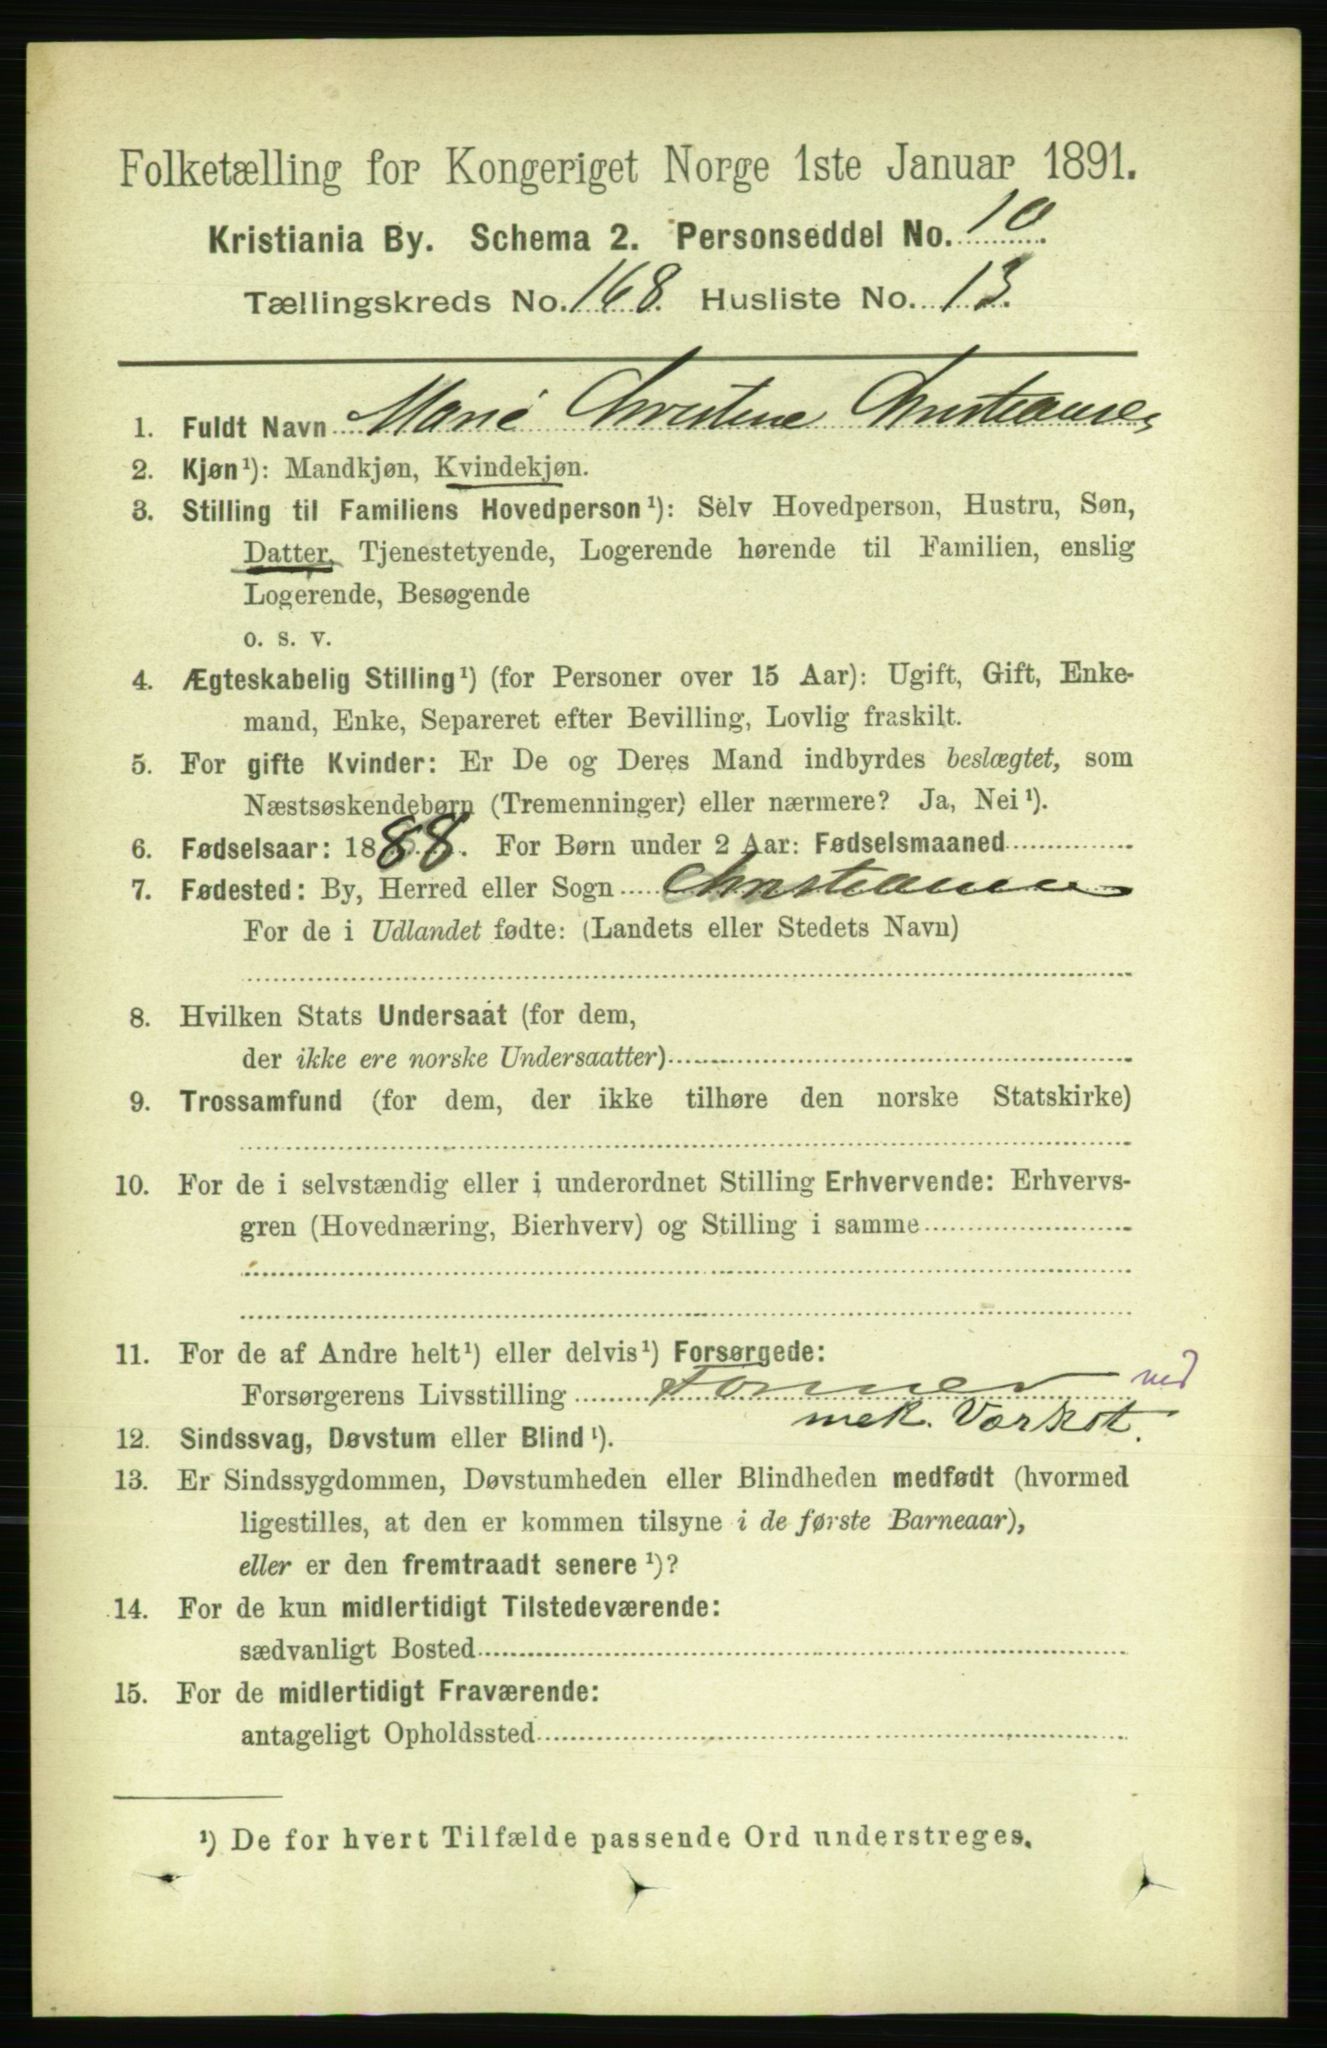 Folketælling for Kongeriget Norge 1ste Januar 1891.
Kristiania By. Schema 2. Personseddel No. 10.
Tællingskreds No. 168. Husliste No. 13.
1. Fuldt Navn Marie Christine Christiansen
2. Kjøn¹): Mandkjøn, Kvindekjøn.
3. Stilling til Familiens Hovedperson¹): Selv Hovedperson, Hustru, Søn,
Datter, Tjenestetyende, Logerende hørende til Familien, enslig
Logerende, Besøgende
o. s. v.
4. Ægteskabelig Stilling¹) (for Personer over 15 Aar): Ugift, Gift, Enke-
mand, Enke, Separeret efter Bevilling, Lovlig fraskilt.
5. For gifte Kvinder: Er De og Deres Mand indbyrdes beslægtet, som
Næstsøskendebørn (Tremenninger) eller nærmere? Ja, Nei¹).
6. Fødselsaar: 1888. For Børn under 2 Aar: Fødselsmaaned
7. Fødested: By, Herred eller Sogn Christiania
For de i Udlandet fødte: (Landets eller Stedets Navn)
8. Hvilken Stats Undersaat (for dem,
der ikke ere norske Undersaatter)
9. Trossamfund (for dem, der ikke tilhøre den norske Statskirke)
10. For de i selvstændig eller i underordnet Stilling Erhvervende: Erhvervs-
gren (Hovednæring, Bierhverv) og Stilling i samme
11. For de af Andre helt¹) eller delvis¹) Forsørgede:
Forsørgerens Livsstilling Former ved
mek. Værkst.
12. Sindssvag, Døvstum eller Blind¹).
13. Er Sindssygdommen, Døvstumheden eller Blindheden medfødt (hvormed
ligestilles, at den er kommen tilsyne i de første Barneaar),
eller er den fremtraadt senere¹)?
14. For de kun midlertidigt Tilstedeværende:
sædvanligt Bosted
15. For de midlertidigt Fraværende:
antageligt Opholdssted
¹) De for hvert Tilfælde passende Ord understreges.